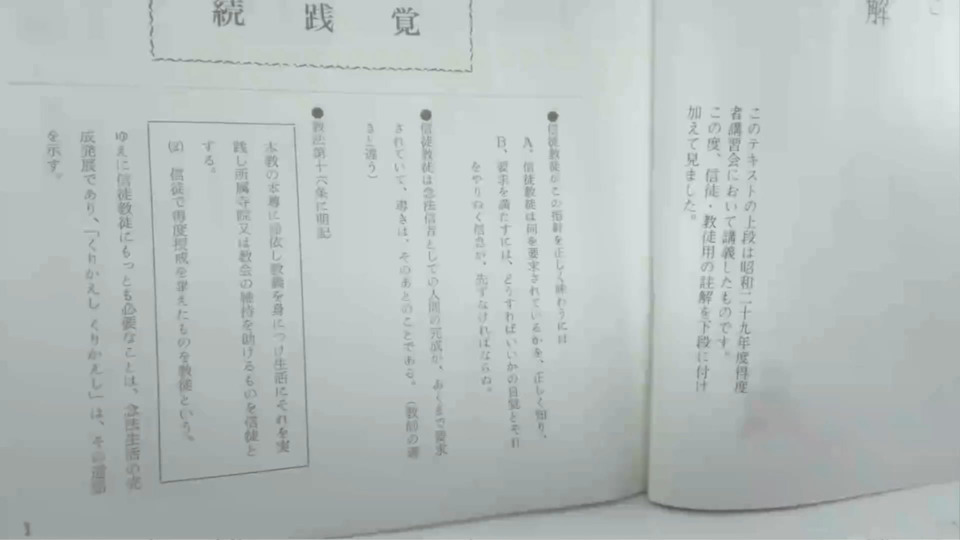 解
このテキストの上段は昭和二十九年度得度
者講習会において講義したものです。
この度、信徒・教徒用の註解を下段に付け
加えて見ました。
覚
践
続
●信徒教徒がこの指針を正しく味わうには
A、信徒教徒は何を要求されているかを、正しく知り、
B、要求を満たすには、どうすればいいかの自覚とそれ
をやりぬく信念が、先ずなければならぬ。
●信徒教徒は念法信者としての人間の完成が、あくまで要求
されていて、導きは、そのあとのことである。(教師の導
きと違う)
●教法第十六条に明記
本教の本尊に帰依し教義を身につけ生活にそれを実
践し所属寺院又は教会の維持を助けるものを信徒と
する。
信徒で得度授戒を享えたものを教徒という。
ゆえに信徒教徒にもっとも必要なことは、念法生活の完
成発展であり、「くりかえし くりかえし」は、その道筋
を示す。
1